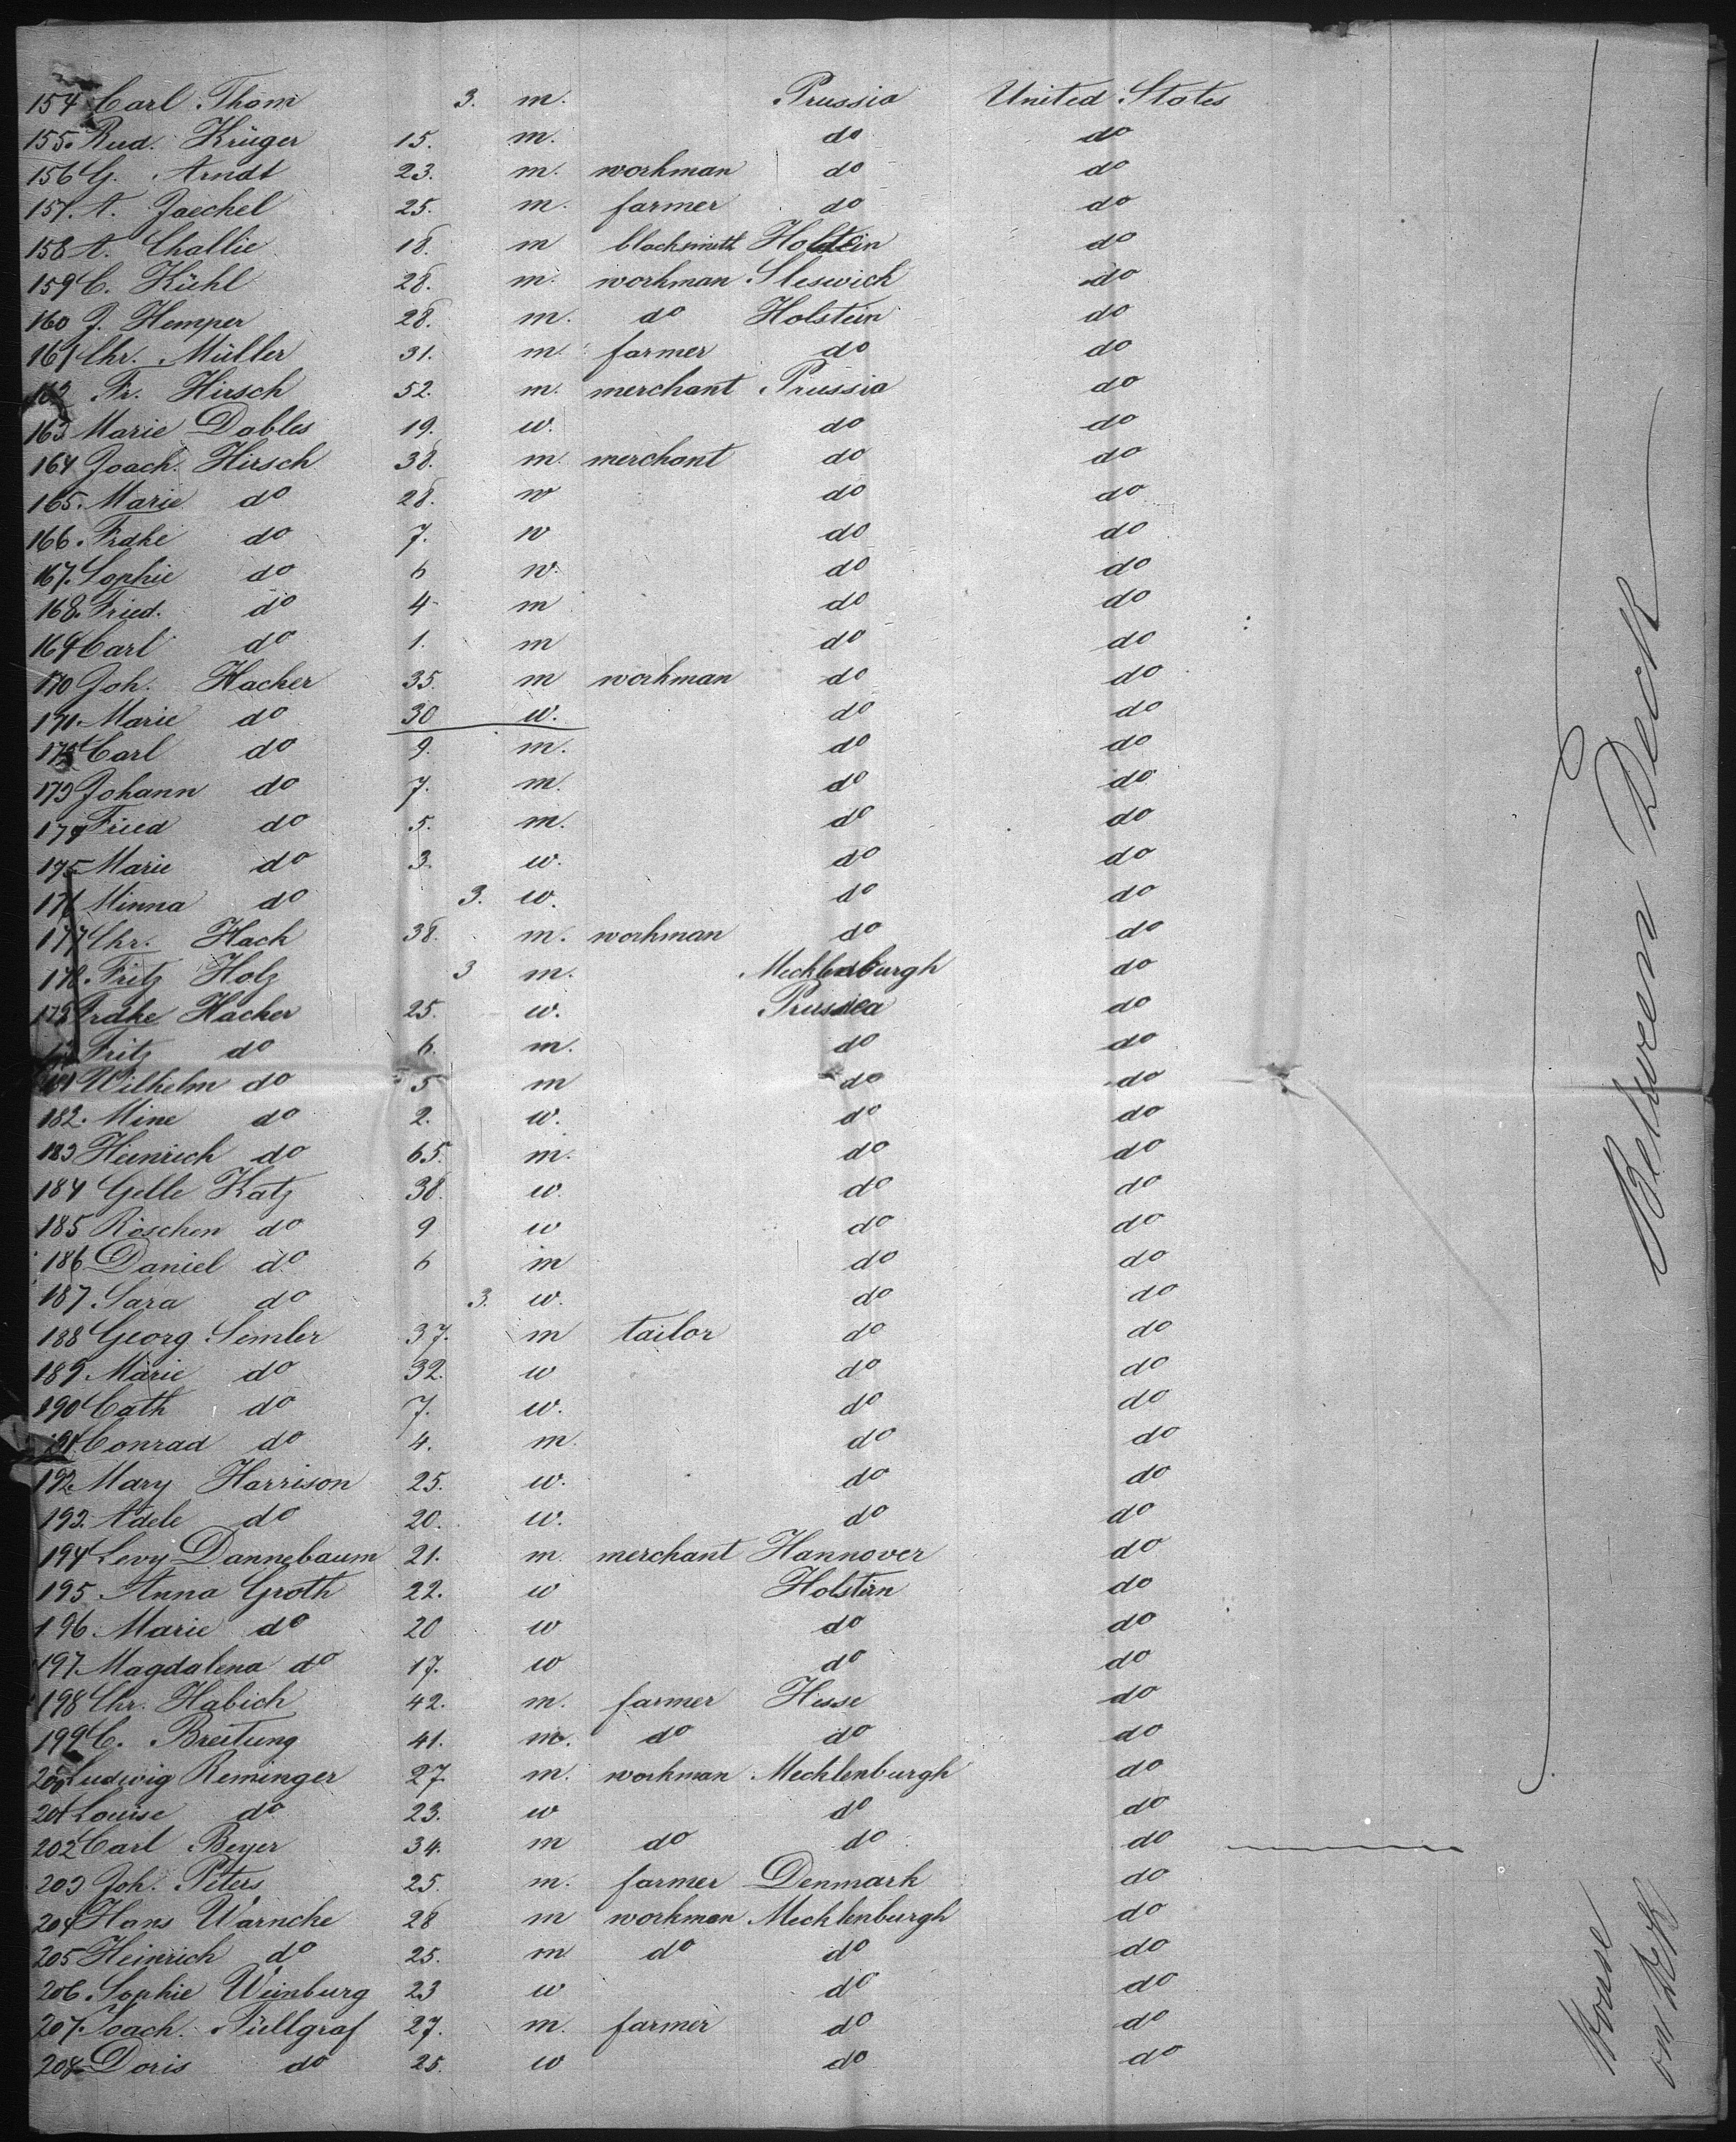 154 Carl Thom 3. m. Prussia United States
155. Rud. Krüger 15. m. do do
156 G. Arndt 23. m. workman do do
157. A. Jaeckel 25. m. farmer do do
158 A. Challie 18. m blacksmith Holstein do
159 C. Kühl 28. m. workman Sleswick do
160 J. Kemper 28. m. do Holstein do
161 Chr. Müller 31. m. farmer do do
162 Fr. Hirsch 52. m. merchant Prussia do
163 Marie Dobles 19. w. do do
164 Joach. Hirsch 38. m. merchant do do
165. Marie do 28. w do do
166. Frdke do 7. w do do
167. Sophie do 6 w. do do
168. Fried. do 4 m do do
169 Carl do 1. m do do
170 Joh. Hacker 35. m workman do do
171. Marie do 30 w. do do
172 Carl do 9. m. do do
173 Johann do 7. m. do do
174 Fried do 5. m. do do
175 Marie do 3. w. do do
176 Minna do 3. w. do do
177 Chr. Hack 38. m. workman do do
178. Fritz Holz 3 m. Mecklenburgh do
179 Frdke Hacker 25. w. Prussia do
Fritz do 6. m. do do
181 Wilhelm do 5 m do do
182. Mine do 2. w. do do
183 Heinrich do 65. m. do do
184 Gelle Katz 38. w. do do
185 Röschen do 9 w do do
186 Daniel do 6 m do do
187. Sara do 3. w. do do
188 Georg Simler 37. m tailor do do
189. Marie do 32. w do do
190 Cath do 7. w. do do
191 Conrad do 4. m. do do
192. Mary Harrison 25. w. do do
193. Adele do 20. w. do do
194 Levy Dannebaum 21. m. merchant Hannover do
195 Anna Groth 22. w Holstein do
196 Marie do 20 w do do
197. Magdalena do 17. w do do
198 Chr. Habich 42. m. farmer Hesse do
199 C. Breitung 41. m. do do do
200 Ludwig Reminger 27. m. workman Mecklenburgh do
201 Louise do 23. w do do
202 Carl Beyer 34. m do do do
203 Joh. Peters 25. m. farmer Denmark do
204 Hans Warncke 28 m workman Mecklenburgh do
205 Heinrich do 25. m do do do
206. Sophie Weinburg 23 w do do
207. Joach. Füllgraf 27. m. farmer do do
208. Doris do 25. w do do
Between Deck
House
on Deck